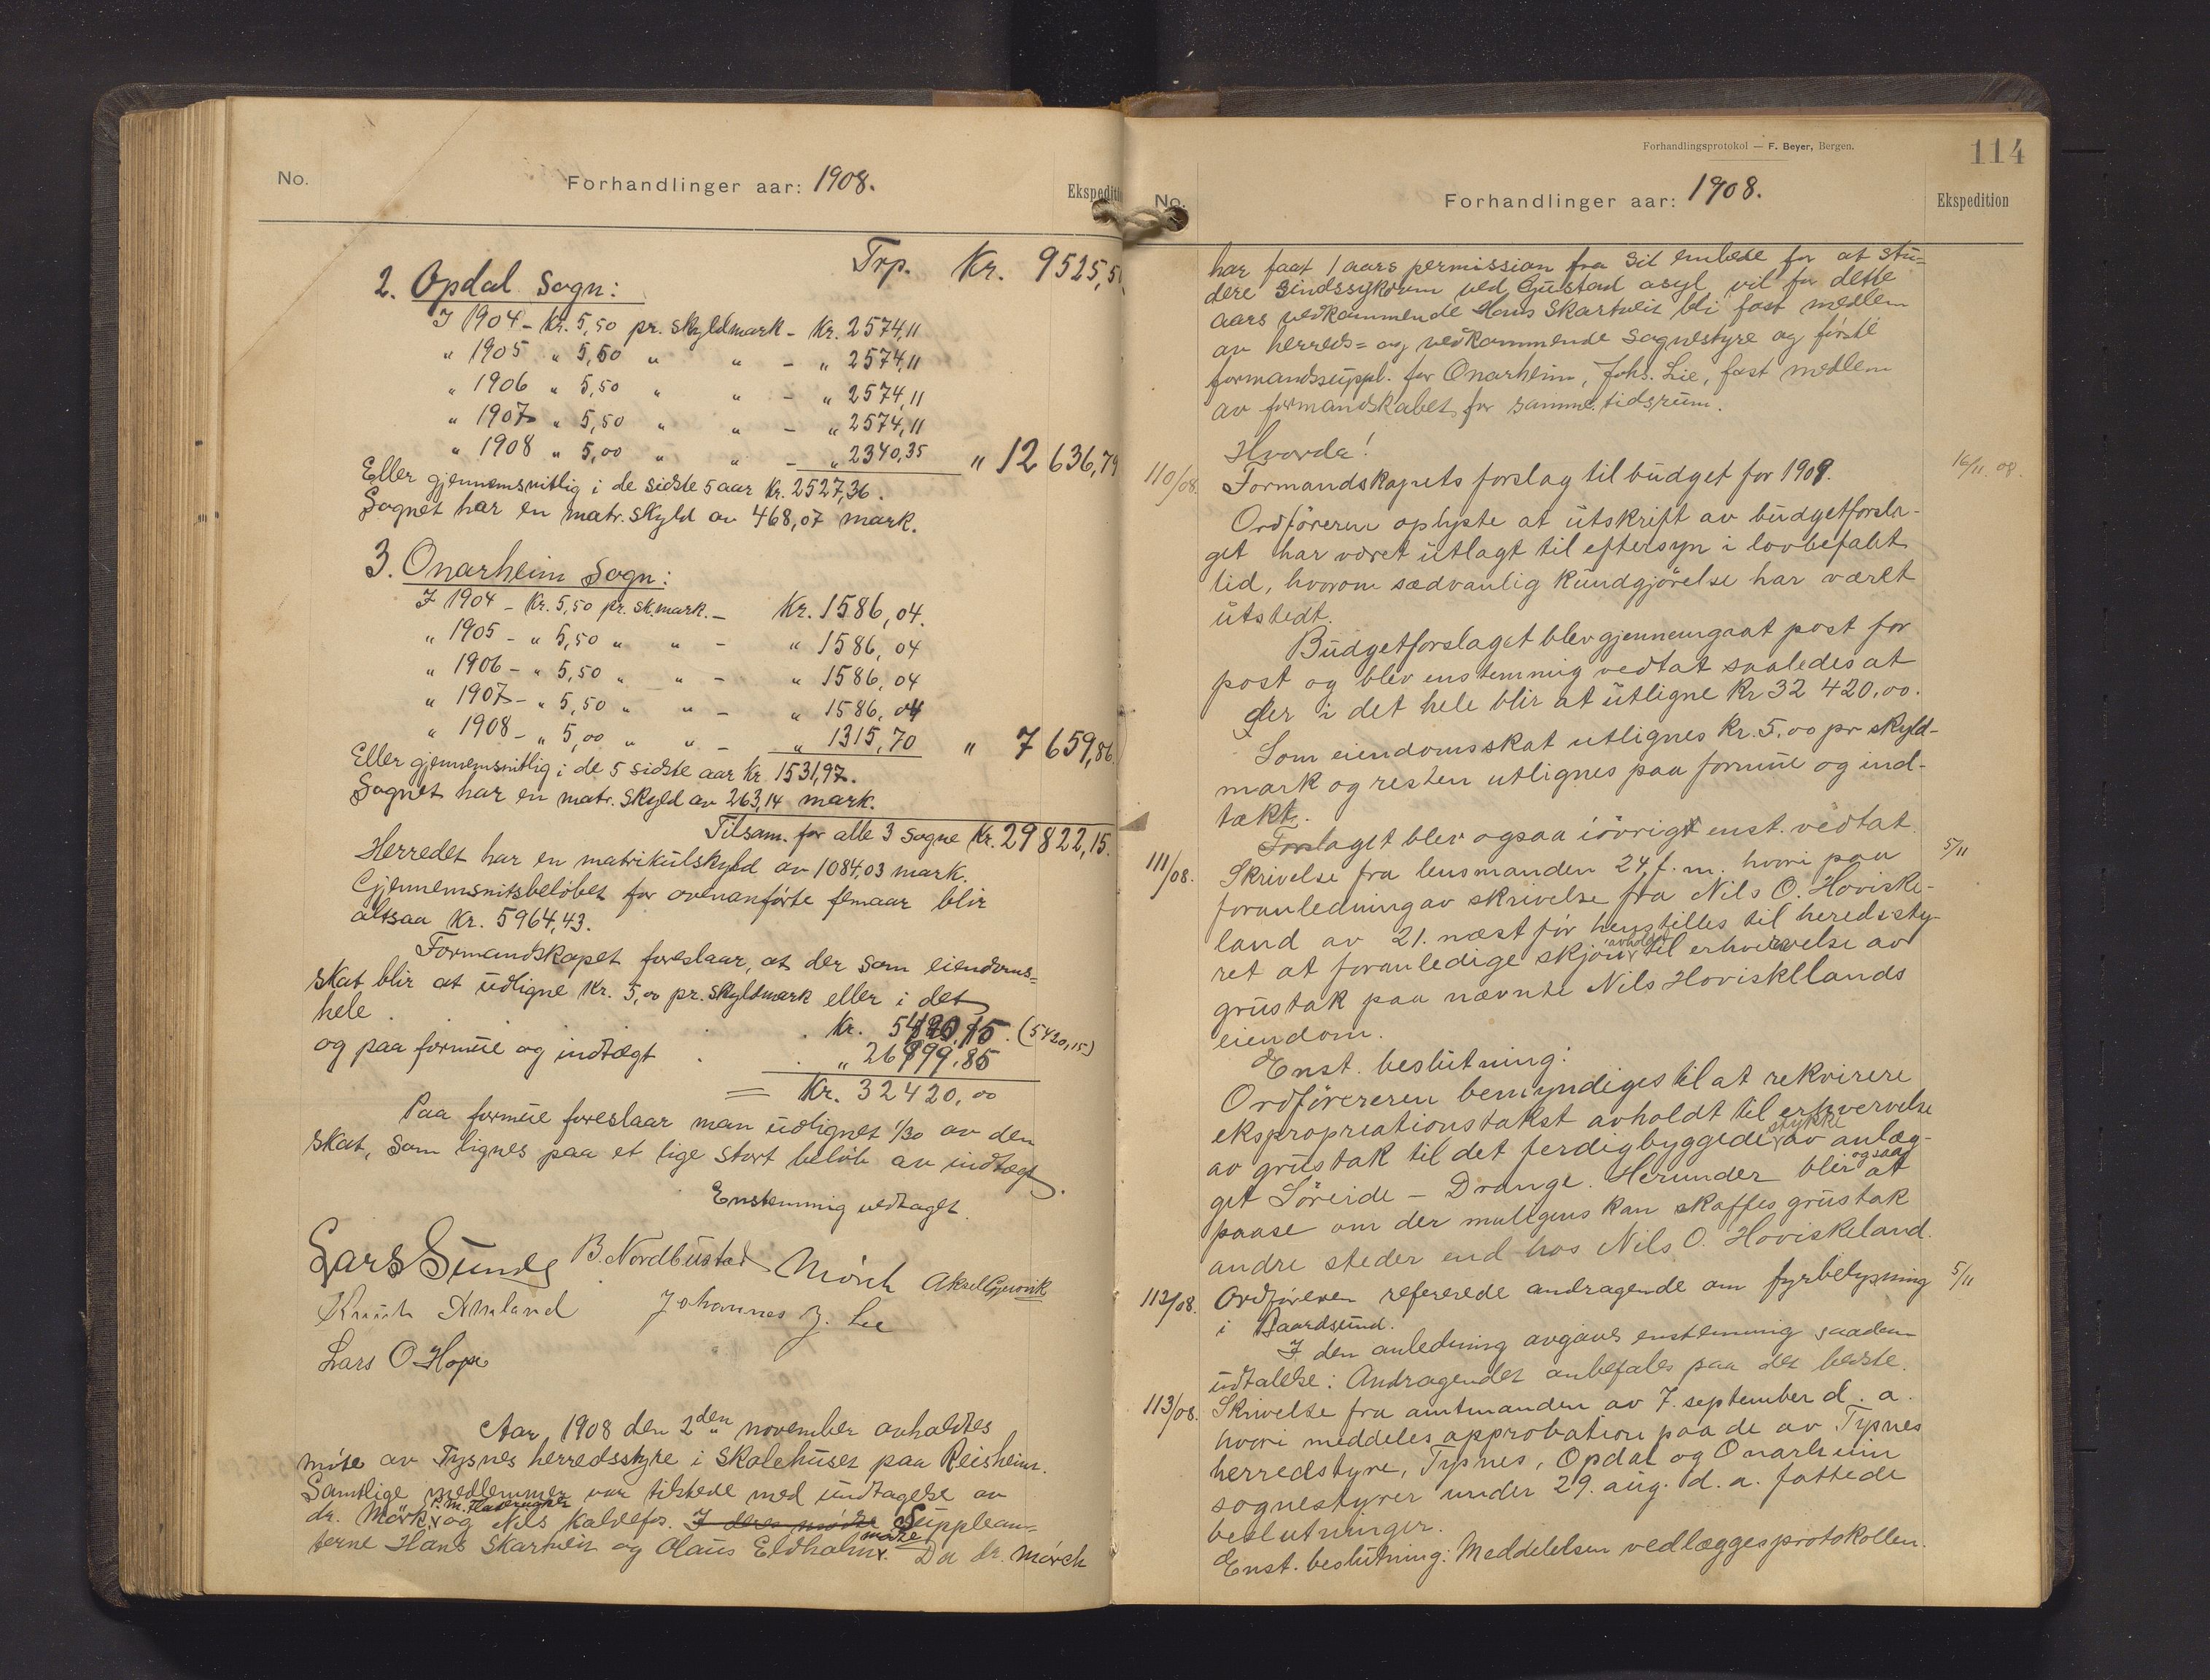 No.
Forhandlinger aar: 1908.
Ekspediti
Trp. Kr. 9525,5
2. Opdal Sogn:
I 1904 - Kr. 5,50 pr. skyldmark - Kr. 2574,11
" 1905 " 5,50 " " - " 2574,11
" 1906 " 5,50 " " - " 2574,11
" 1907 " 5,50 " " - " 2574,11
" 1908 " 5,00 " " - " 2340,35 " 12 636,79
Eller gjennemsnitlig i de sidste 5 aar Kr. 2527,36.
Sognet har en matr. skyld av 468,07 mark.
3. Onarheim Sogn:
I 1904 - Kr. 5,50 pr. sk.mark. - Kr. 1586,04.
" 1905 - " 5,50 " " - " 1586,04
" 1906 - " 5,50 " " - " 1586,04
" 1907 - " 5,50 " " - " 1586,04
" 1908 - " 5,00 " " - " 1315,70 " 7 659,86
Eller gjennemsnitlig i de 5 sidste aar Kr. 1531,97.
Sognet har en matr. skyld av 263,14 mark.
Tilsam. for alle 3 sogne Kr. 29822,15.
Herredet har en matrikulskyld av 1084,03 mark.
Gjennemsnitsbeløbet for ovenanførte femaar blir
altsaa Kr. 5964,43.
Formandskapet foreslaar, at der som eiendoms=
skat blir at udligne Kr. 5,00 pr. skyldmark eller i det
hele . . . Kr. 5420,15. (5420,15)
og paa formue og indtægt . . " 26999,85
= Kr. 32420,00
Paa formue foreslaar man udlignet 1/30 av den
skat, som lignes paa et lige stort beløb av indtægt.
Enstemmig vedtaget.
Lars Sunde B. Nordbustad Mörch Aksel Gjervik
Knut Amland Johannes J. Lie
Lars O. Hope
Aar 1908 den 2den november avholdtes
møte av Tysnes herredsstyre i skolehuset paa Reisheim.
Samtlige medlemmer var tilstede med undtagelse av
dr. Mörk, P.M. og Nils Kalvefos. I deres møtte Supplean=
terne Hans Skartveit og Olaus Eldholm møtte. Da dr. Mörch
Forhandlingsprotokol — F. Beyer, Bergen.
114
No.
Forhandlinger aar: 1908.
Ekspedition
har faat 1 aars permission fra sit embede for at stu=
dere sindssykdom ved Gaustad asyl vil for dette
aars vedkommende Hans Skartveit bli fast medlem
av herreds= og vedkommende sognestyre og første
formandssuppl. for Onarheim, Johs. Lie, fast medlem
av formandskabet for samme tidsrum.
Hvorda!
110/08. Formandskapets forslag til budget for 1909. 16/11. 08.
Ordföreren oplyste at utskrift av budgetforsla-
get har været utlagt til eftersyn i lovbefalt
tid, hvorom sædvanlig kundgjörelse har været
utstedt.
Budgetforslaget blev gjennemgaat post for
post og blev enstemmig vedtat saaledes at
der i det hele blir at utligne Kr 32 420,00.
Som eiendomsskat utlignes kr. 5,00 pr skyld-
mark og resten utlignes paa formue og ind-
tækt.
Forslaget blev ogsaa iövrigt enst. vedtat.
111/08. Skrivelse fra lensmanden 24. f. m. hvori paa 5/11
foranledning av skrivelse fra Nils O. Hoviske-
land av 21. næst för henstilles til heredssty-
ret at foranledige skjön avholdt til erhvervelse av
grustak paa nævnte Nils Hovisklands
eiendom.
Enst. beslutning:
Ordföreren bemyndiges til at rekvirere
ekspropriationstakst avholdt til erhvervelse
av grustak til det ferdigbyggede stykke av anlæg-
get Söreide - Drange. Herunder blir ogsaa at
paase om der muligens kan skaffes grustak
andre steder end hos Nils O. Hoviskeland.
112/08. Ordføreren refererede andragende om fyrbelysning 5/11
i Baardsund.
I den anledning avgaves enstemmig saadan
udtalelse: Andragendet anbefales paa det bedste.
113/08. Skrivelse fra amtmanden av 7. september d. a.
hvori meddeles approbation paa de av Tysnes
herredstyre, Tysnes, Opdal og Onarheim
sognestyrer under 29. aug. d. a. fattede
beslutninger.
Enst. beslutning: Meddelelsen vedlægges protokollen.